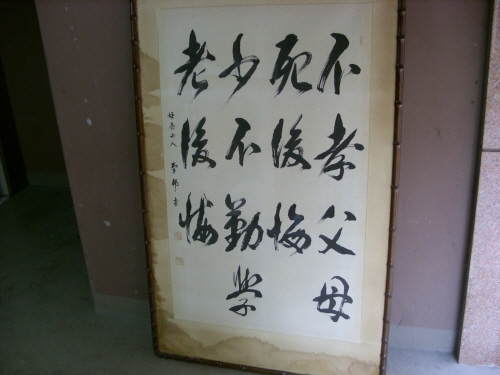 不孝父母
死後悔
少不勤學
老後悔